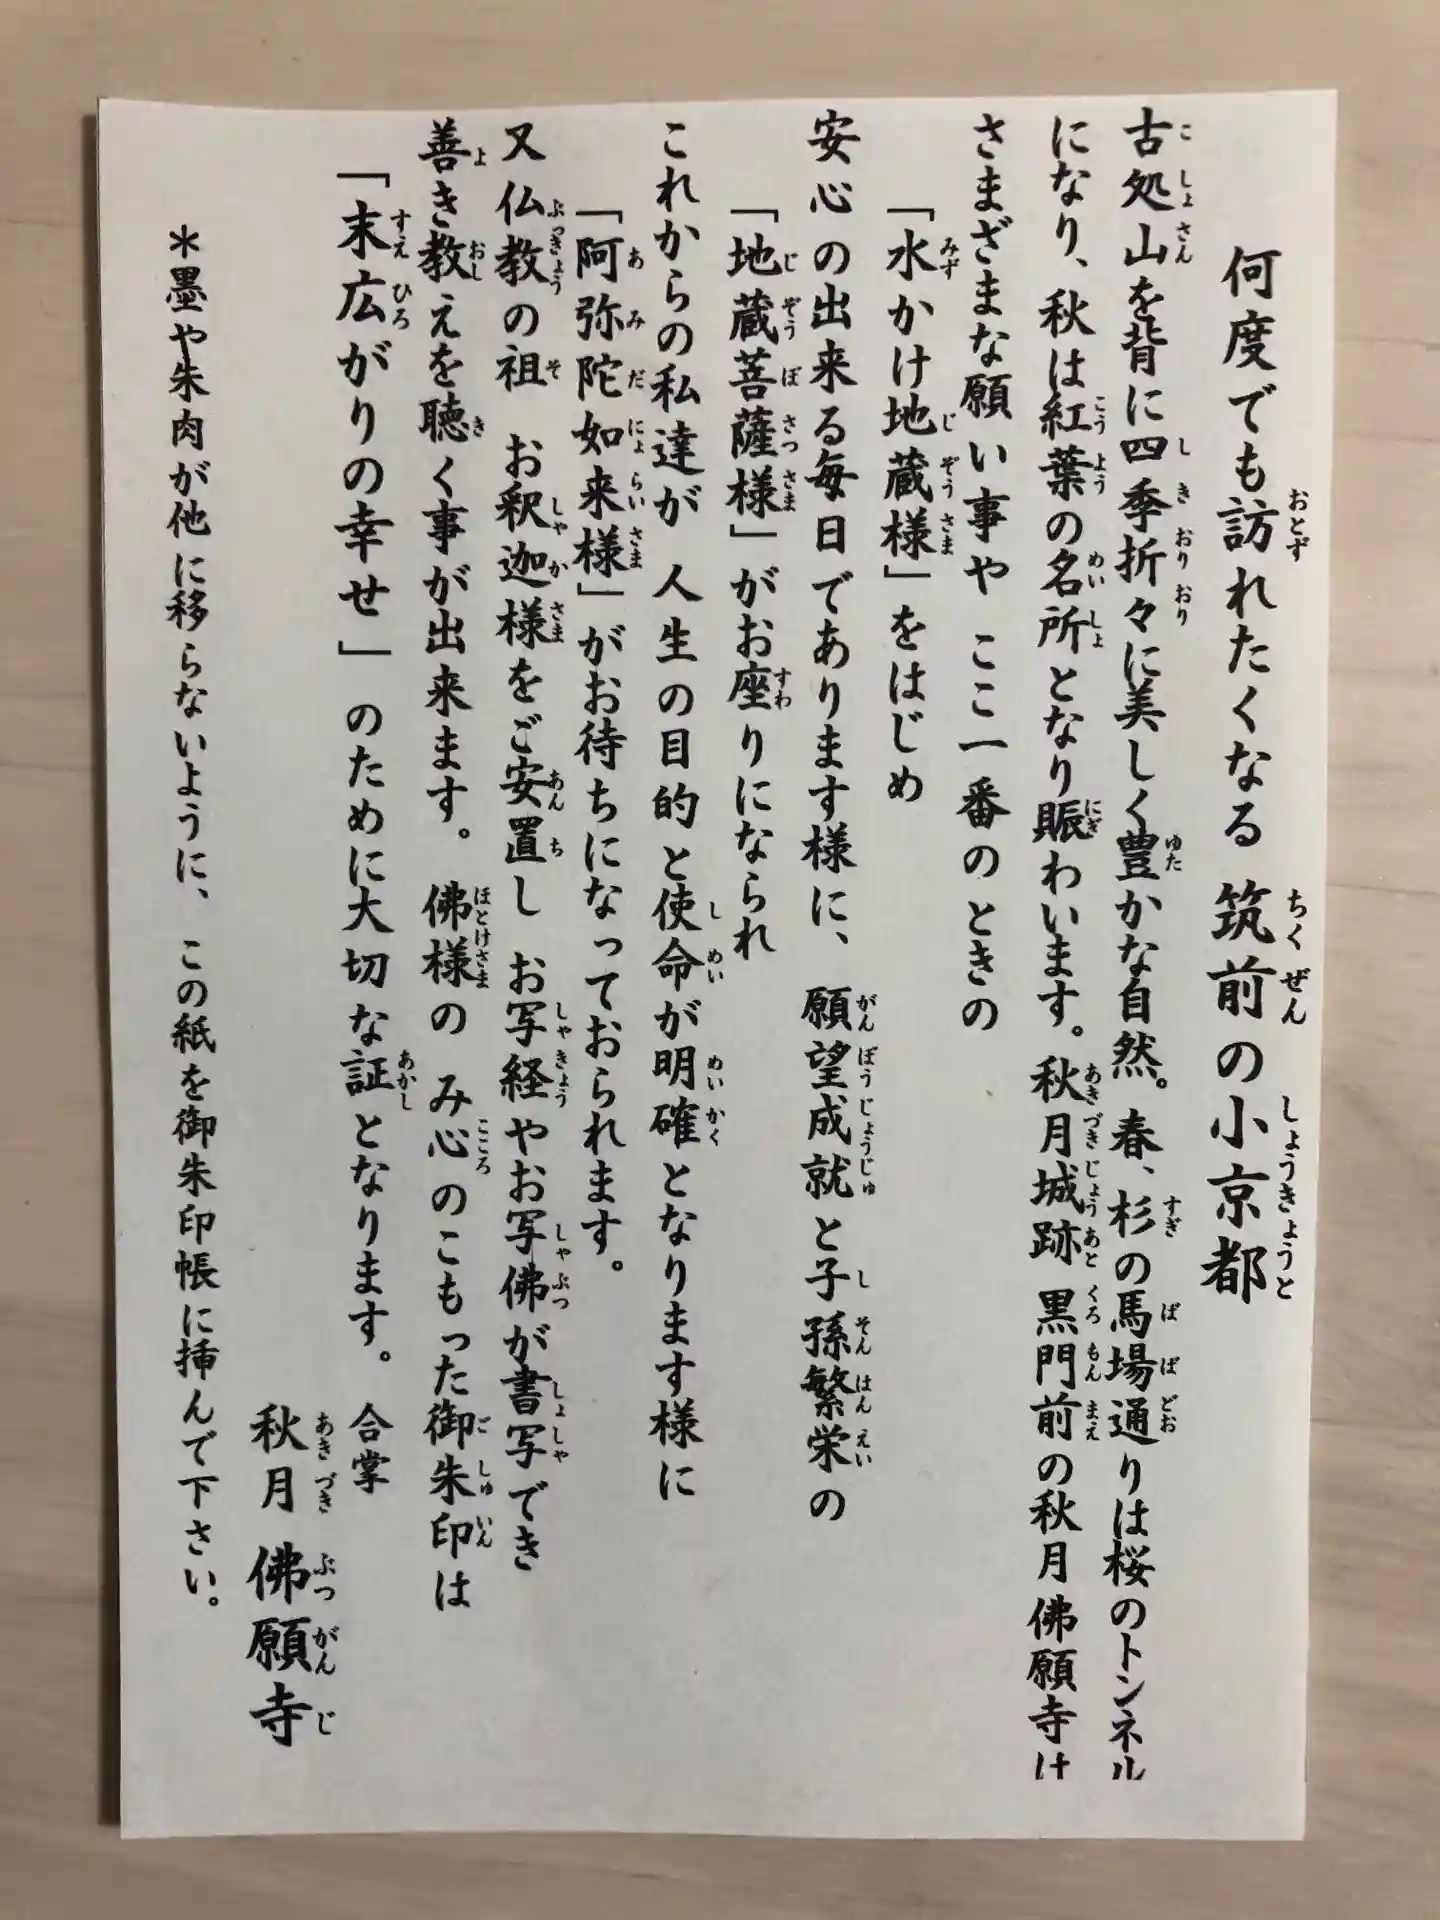 何度でも訪れたくなる 筑前の小京都
古処山を背に四季折々に美しく豊かな自然。春、杉の馬場通りは桜のトンネル
になり、秋は紅葉の名所となり賑わいます。秋月城跡 黒門前の秋月佛願寺は
さまざまな願い事や ここ一番のときの
「水かけ地蔵様」をはじめ
安心の出来る毎日であります様に、 願望成就と子孫繁栄の
「地蔵菩薩様」がお座りになられ
これからの私達が 人生の目的と使命が明確となります様に
「阿弥陀如来様」がお待ちになっておられます。
又仏教の祖 お釈迦様をご安置し お写経やお写佛が書写でき
善き教えを聴く事が出来ます。 佛様の み心のこもった御朱印は
「末広がりの幸せ」 のために大切な証となります。 合掌
秋月 佛願寺
＊墨や朱肉が他に移らないように、 この紙を御朱印帳に挿んで下さい。